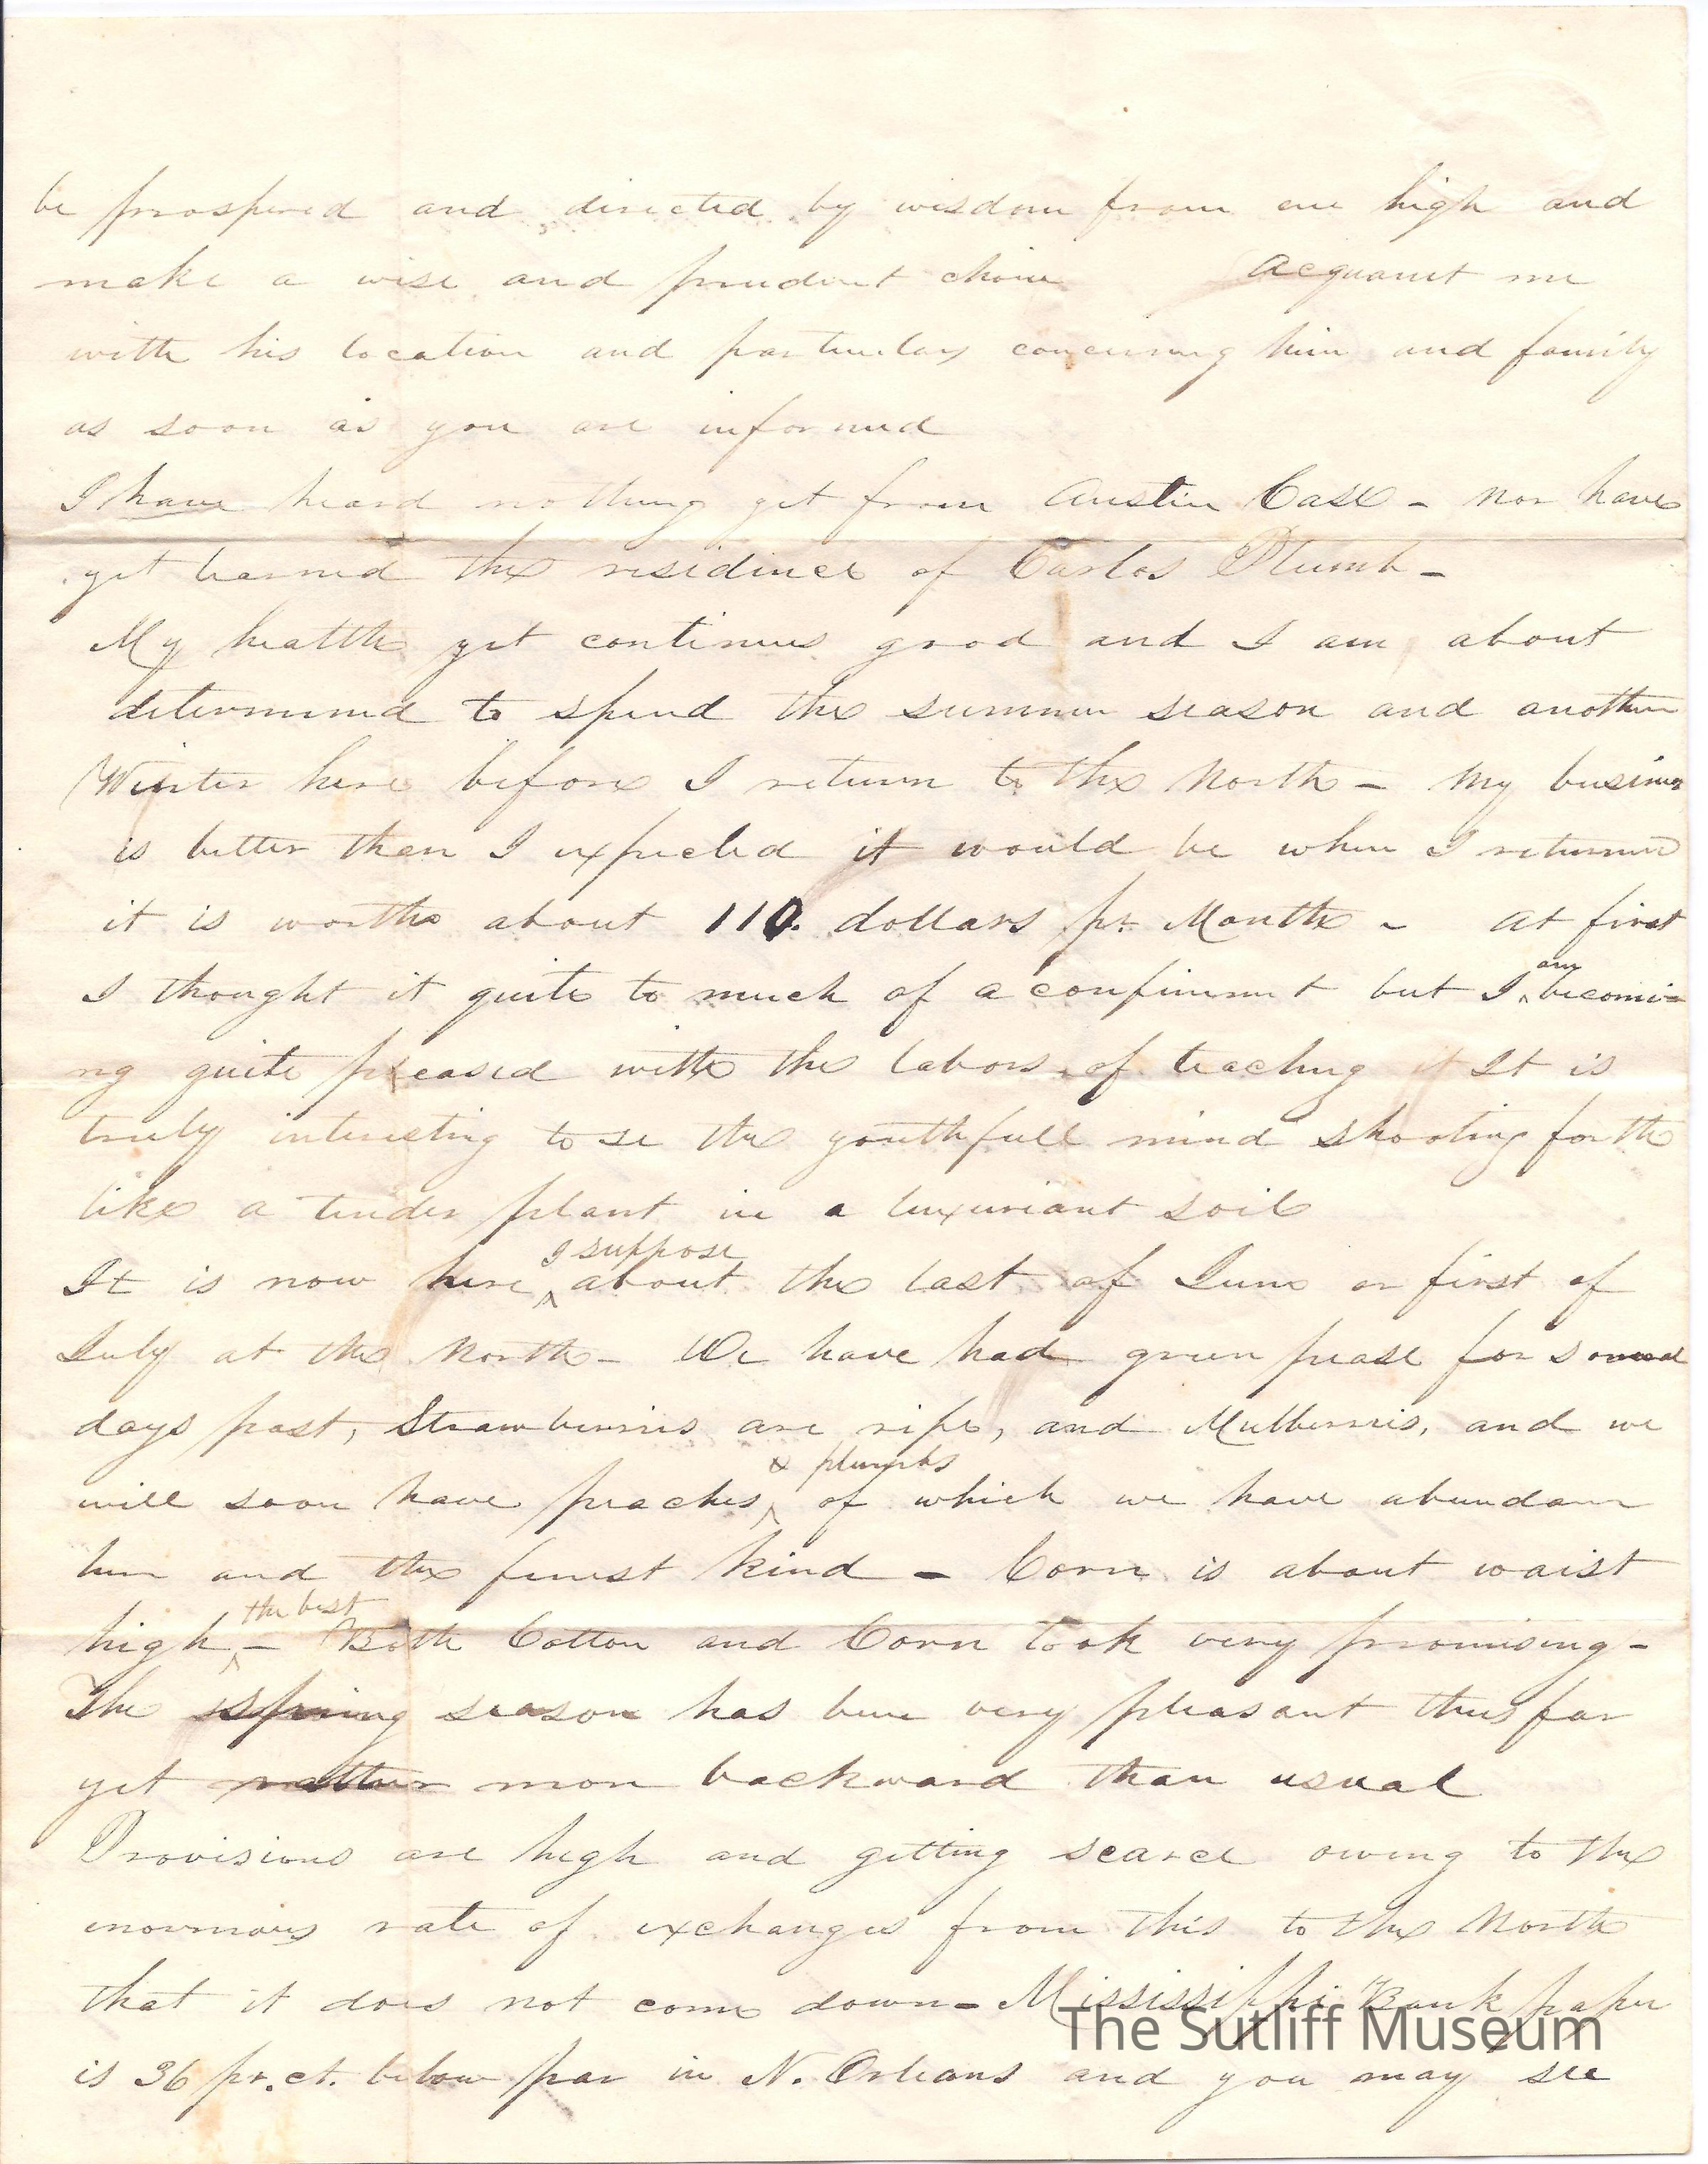 be prospered and directed by wisdom from on high and
make a wise and prudent choice Acquaint me
with his location and particulars concerning him and family
as soon as you are informed
I have heard nothing yet from Austin Case - nor have
yet learned the residence of Carlos Plumb -
My health yet continues good and I am about
determined to spend the summer season and another
Winter here before I return to the North - My business
is better than I expected it would be when I returned
it is worth about 110. dollars pr. Month - At first
I thought it quite to much of a confinement but I ^am becomi-
ng quite pleased with the labors of teaching It is
truly interesting to se the youthfull mind shooting forth
like a tender plant in a luxuriant soil
It is now here ^I suppose about the last of June or first of
July at the North - We have had green pease for
days past, Strawberries are ripe, and Mulberries, and we
will soon have peaches ^& plumbs of which we have abundan
here and the finest kind - Corn is about waist
high ^the best - Both Cotton and Corn look very promising -
The spring season has been very pleasant thus far
yet rather more backward than usual
Provisions are high and getting scarce owing to the
enormous rate of exchanges from this to the North
that it does not come down - Mississippi Bank paper
is 36 pr. ct. below par in N. Orleans and you may see
The Sutliff Museum